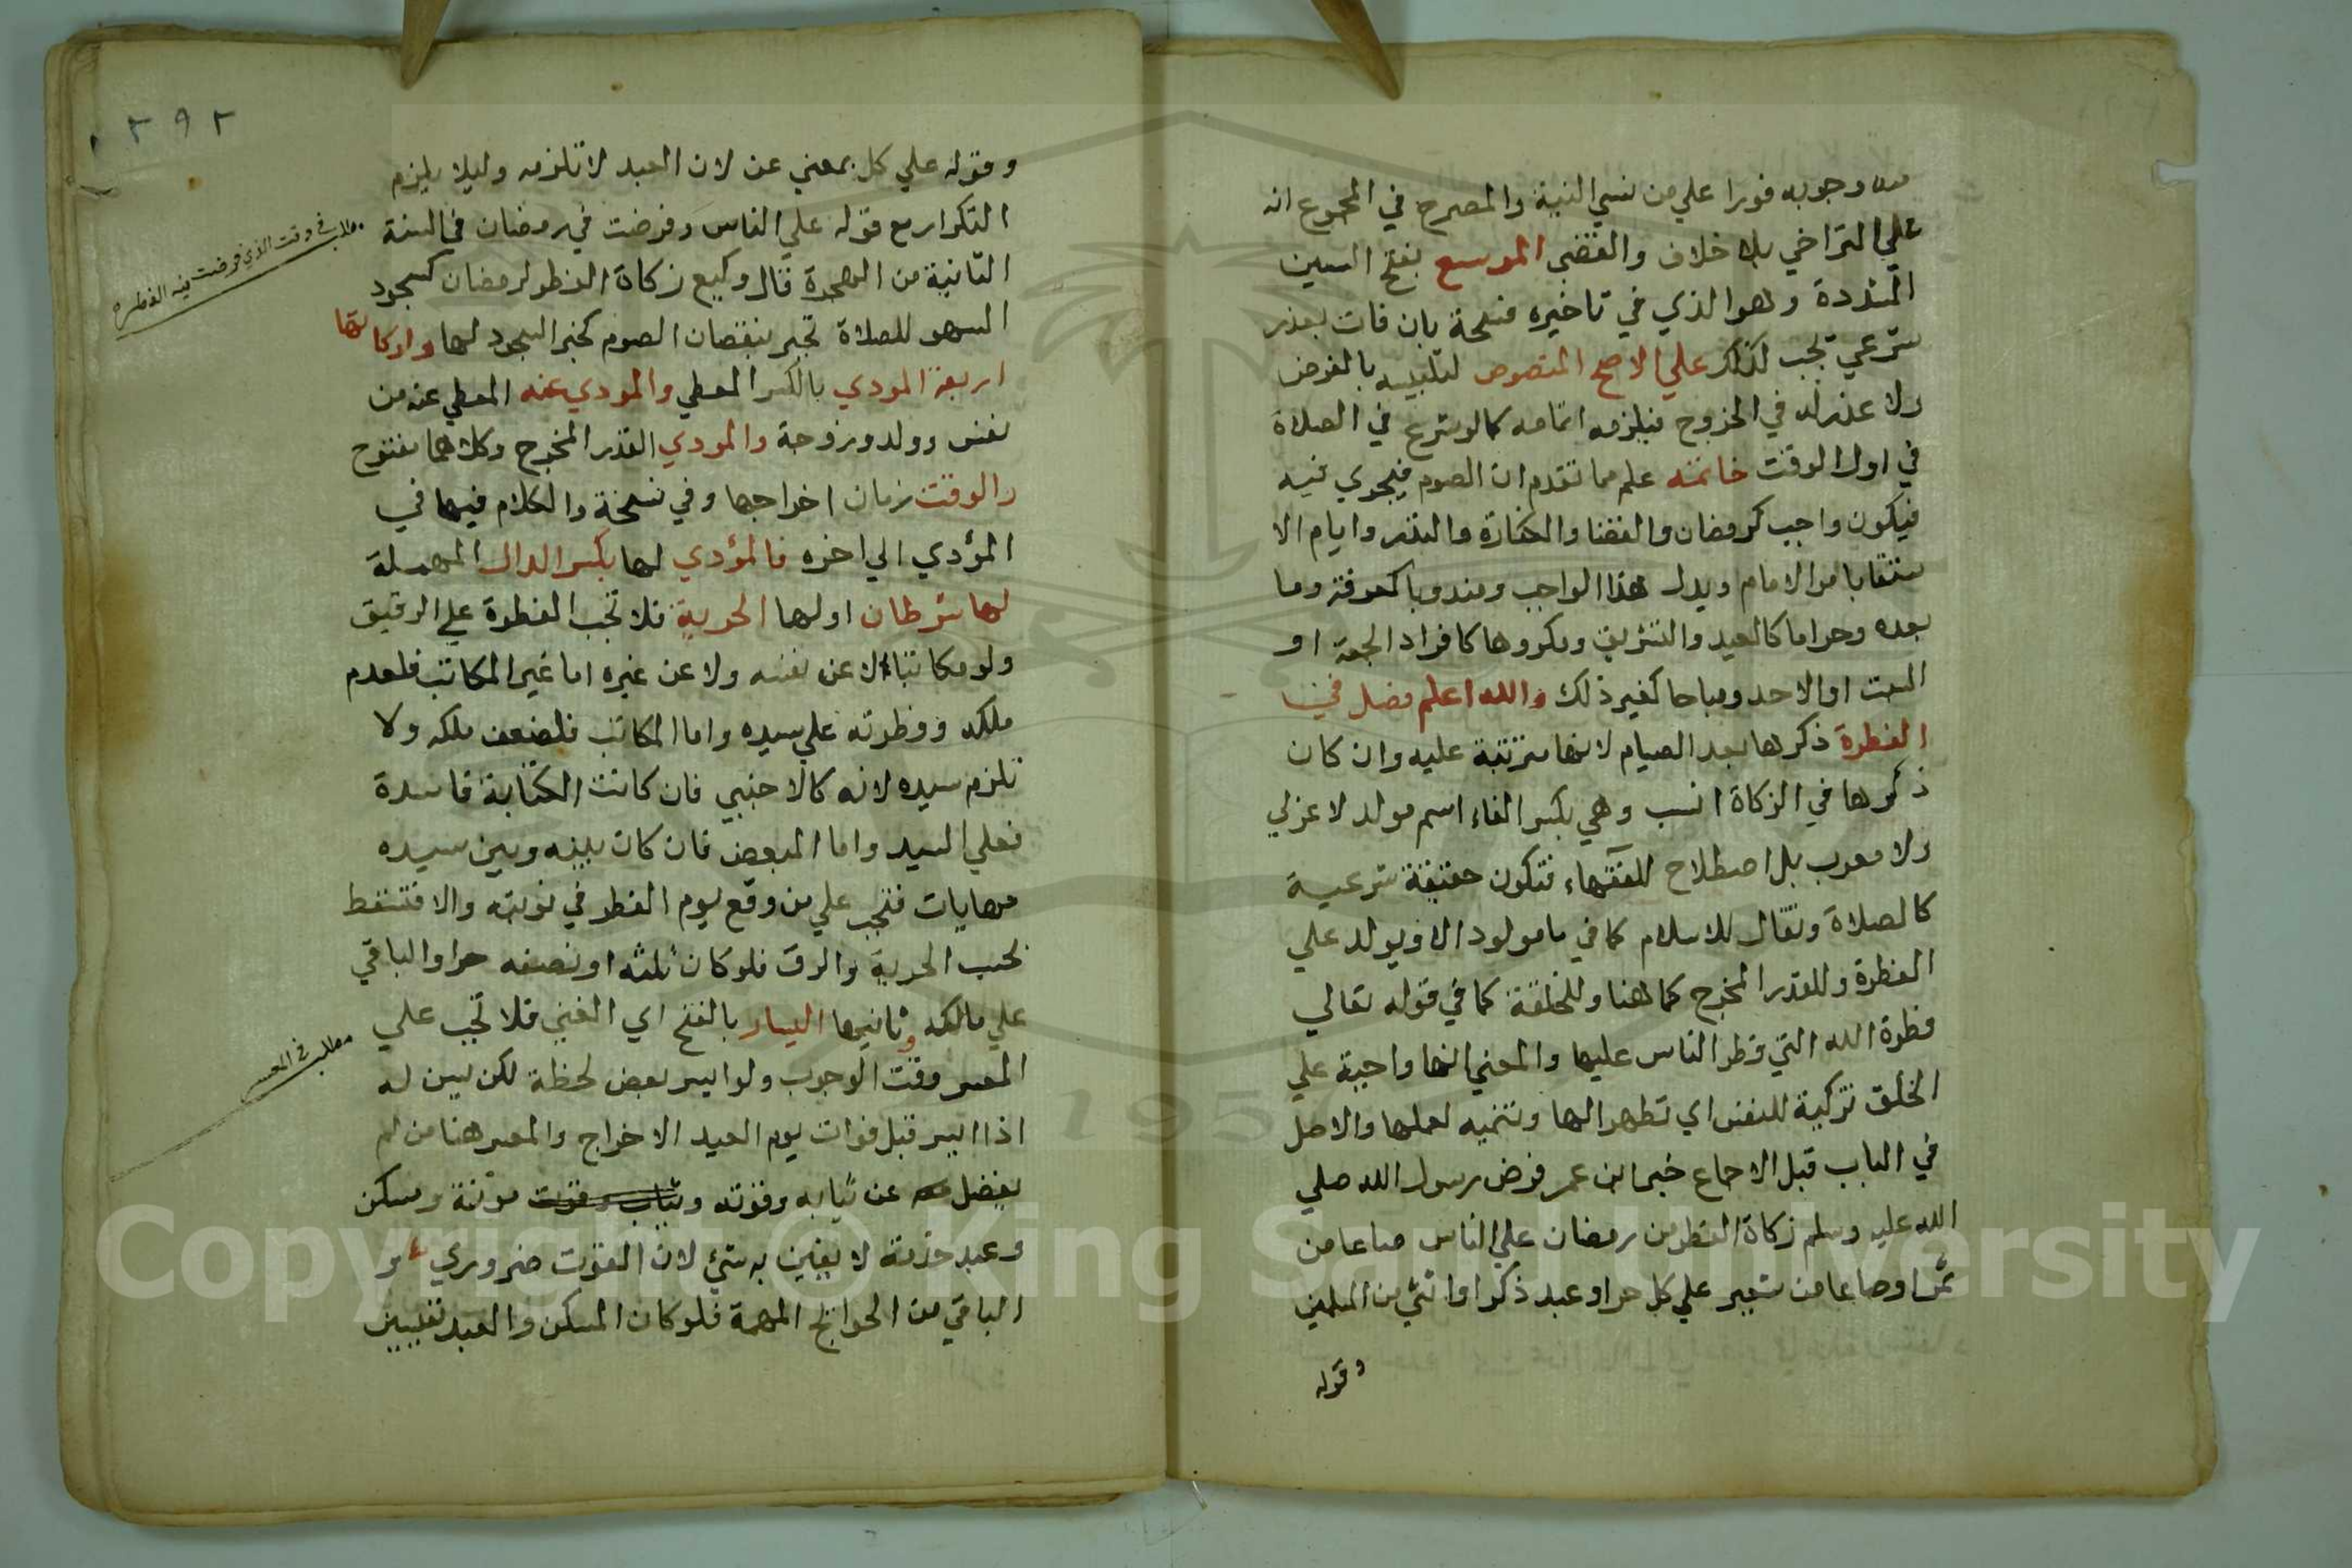 وجوبه فورا علي من نسي النية والمصرح في المجموع انه
علي التراخي بلا خلاف والقضي الموسع بفتح السين
المشددة وهو الذي في تاخيره فسحة بان فات بعذر
شرعي تجب لذلك علي الاصح المنصوص لتلبسه بالفرض
ولا عذر له في الخروج فيلزمه اتمامه كما لو شرع في الصلاة
في اول الوقت خاتمه علم مما تقدم ان الصوم فيجري فيه
فيكون واجب كرمضان والقضا والكفارة والنذر وايام الا
ستسقا بامر الامام وبدل هذا الواجب ومندوبا كعرفة وما
بعده وحراما كالعيد والتشريق ومكروها كافراد الجمعة او
السبت او الاحد ومباحا كغير ذلك والله اعلم فصل في
الفطرة ذكرها بعد الصيام لانها مترتبة عليه وان كان
ذكرها في الزكاة انسب وهي بكسر الفاء اسم مولد لا عزلي
ولا معرب بل اصطلاح للفقهاء فتكون حقيقة شرعية
كالصلاة وتقال للاسلام كما في ما مولود الا ويولد علي
الفطرة وللقدر المخرج كما هنا وللخلقة كما في قوله تعالي
فطرة الله التي فطر الناس عليها والمعني انها واجبة علي
الخلق تزكية للنفس اي تطهيرا لها وتنميه لعملها والاصل
في الباب قبل الاجماع خبر ابن عمر فرض رسول الله صلي
الله عليه وسلم زكاة الفطر من رمضان علي الناس صاعا من
تمر او صاعا من شعير علي كل حر او عبد ذكر او انثي من المسلمين
وقوله
٢٩٢
وقوله علي كل بمعني عن لان العبد لا تلزمه وليلا يلزم
التكرار مع قوله علي الناس وفرضت في رمضان في السنة
الثانية من الهجرة قال وكيع زكاة الفطر لرمضان كسجود
السهو للصلاة تجبر بنقصان الصوم كجبر السجود لها واركانها
اربعة المودي بالكسر المعطي والمودي عنه المعطي عنه من
نفس وولد وزوجة والمودي القدر المخرج وكلاهما بفتوح
والوقت زمان اخراجها وفي نسخة والكلام فيها في
المؤدي الي اخره فالمؤدي لها بكسر الدال المهملة
لها شرطان اولها الحرية فلا تجب الفطرة علي الرقيق
ولو مكاتبا لا عن نفسه ولا عن غيره اما غير المكاتب فلعدم
ملكه وفطرته علي سيده واما المكاتب فلضعف ملكه ولا
تلزم سيده لانه كالاجنبي فان كانت الكتابة فاسدة
فعلي السيد واما المبعض فان كان بينه وبين سيده
مهايات فتجب علي من وقع يوم الفطر في نوبته والا فتسقط
بحسب الحرية والرق فلو كان ثلثه او نصفه حرا والباقي
علي مالكه وثانيها اليسار بالفتح اي الغني فلا تجب علي
المعسر وقت الوجوب ولو ايسر بعض لحظة لكن يسن له
اذا ايسر قبل فوات يوم العيد الاخراج والمعسر هنا من لم
يفضل عن ثيابه وقوته وثياب وقوت موتنة ومسكن
وعبد خدمة لا يفين به شئ لان القوت ضروري و
الباقي من الحوائج المهمة فلو كان المسكن والعبد نفيسين
مطلب في وقت الذي فرضت فيه الفطره
مطلب في المعسر
Copyright © King Saud University
1957